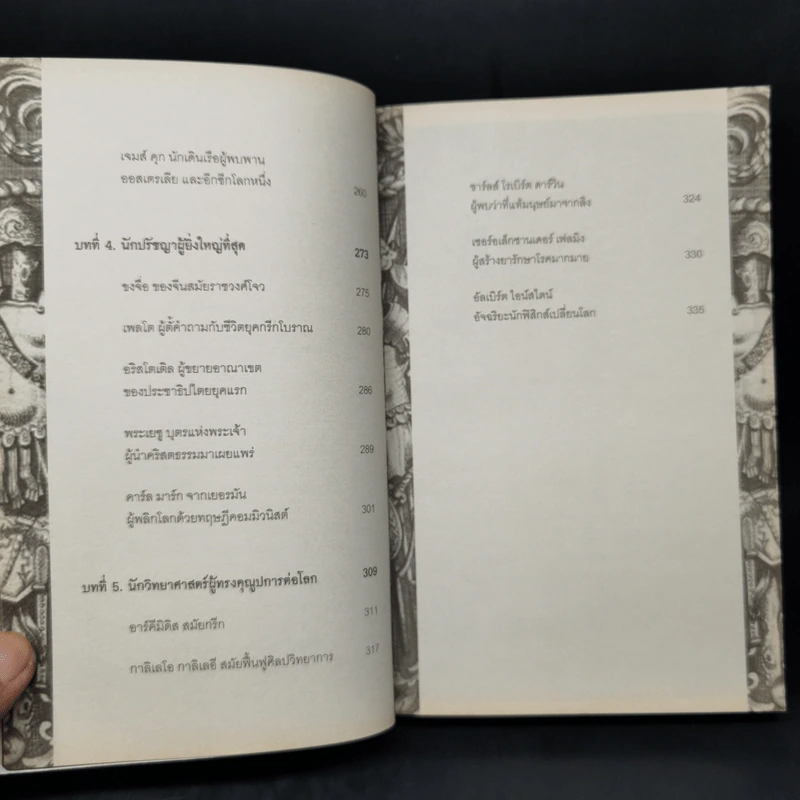 เจมส์ คุก นักเดินเรือผู้พบพาน
ออสเตรเลีย และอีกซีกโลกหนึ่ง 260
บทที่ 4. นักปรัชญาผู้ยิ่งใหญ่ที่สุด 273
ขงจื่อ ของจีนสมัยราชวงศ์โจว 275
เพลโต ผู้ตั้คำถามกับชีวิตยุคกรีกโบราณ 280
อริสโตเติล ผู้ขยายอาณาเขต
ของประชาธิปไตยยุคแรก 286
พระเยซู บุตรแห่งพระเจ้า
ผู้นำคริสตธรรมมาเผยแพร่ 289
คาร์ล มาร์ก จากเยอรมัน
ผู้พลิกโลกด้วยทฤษฎีคอมมิวนิสต์ 301
บทที่ 5. นักวิทยาศาสตร์ผู้ทรงคุณูปการต่อโลก 309
อาร์คีมิดิส สมัยกรีก 311
กาลิเลโอ กาลิเลอี สมัยฟื้นฟูศิลปวิทยาการ 317
ชาร์ลส์ โรเบิร์ต ดาร์วิน
ผู้พบว่าที่แท้มนุษย์มาจากลิง 324
เซอร์อเล็กซานเดอร์ เฟลมิง
ผู้สร้างยารักษาโรคมากมาย 330
อัลเบิร์ต ไอน์สไตน์
อัจฉริยะนักฟิสิกส์เปลี่ยนโลก 335